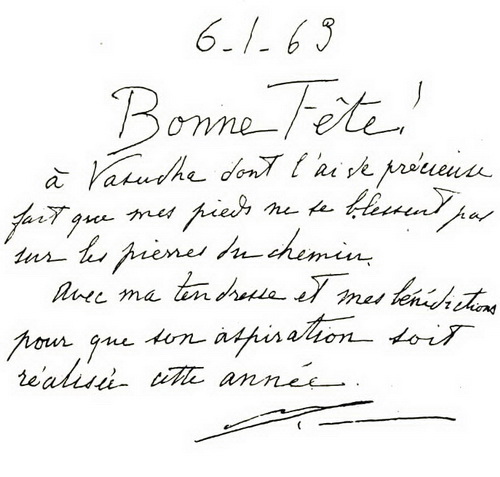 6-1-63
Bonne Fête!
à Vasudha dont l'aide précieuse
fait que mes pieds ne se blessent pas
sur les pierres du chemin.
Avec ma tendresse et mes bénédictions
pour que son aspiration soit
réalisée cette année.